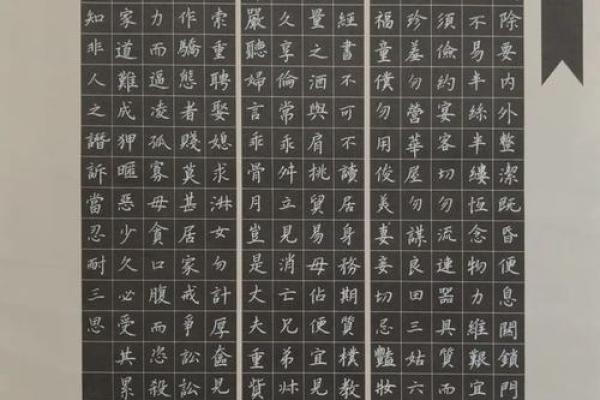 除要內外整潔既昏便息關鎖門
不易半絲半縷恆念物力維艱宜
須儉約宴客切勿流連器具質而
珍羞勿營華屋勿謀良田三姑六
福童僕勿用俊美妻妾切忌豔妝
經書不可不讀居身務期質樸教
量之酒與肩挑貿易毋佔便宜見
久享倫常乖舛立見消亡兄弟叔
嚴聽婦言乖骨月豈是大夫重貲
索重聘娶媳求淑女勿計厚奩見
作驕態者賤莫甚居家戒爭訟訟
力而逼凌孤寡毋貪口腹而恣殺
家道難成狎暱惡少久必受其累
知非人之譖訴當忍耐三思